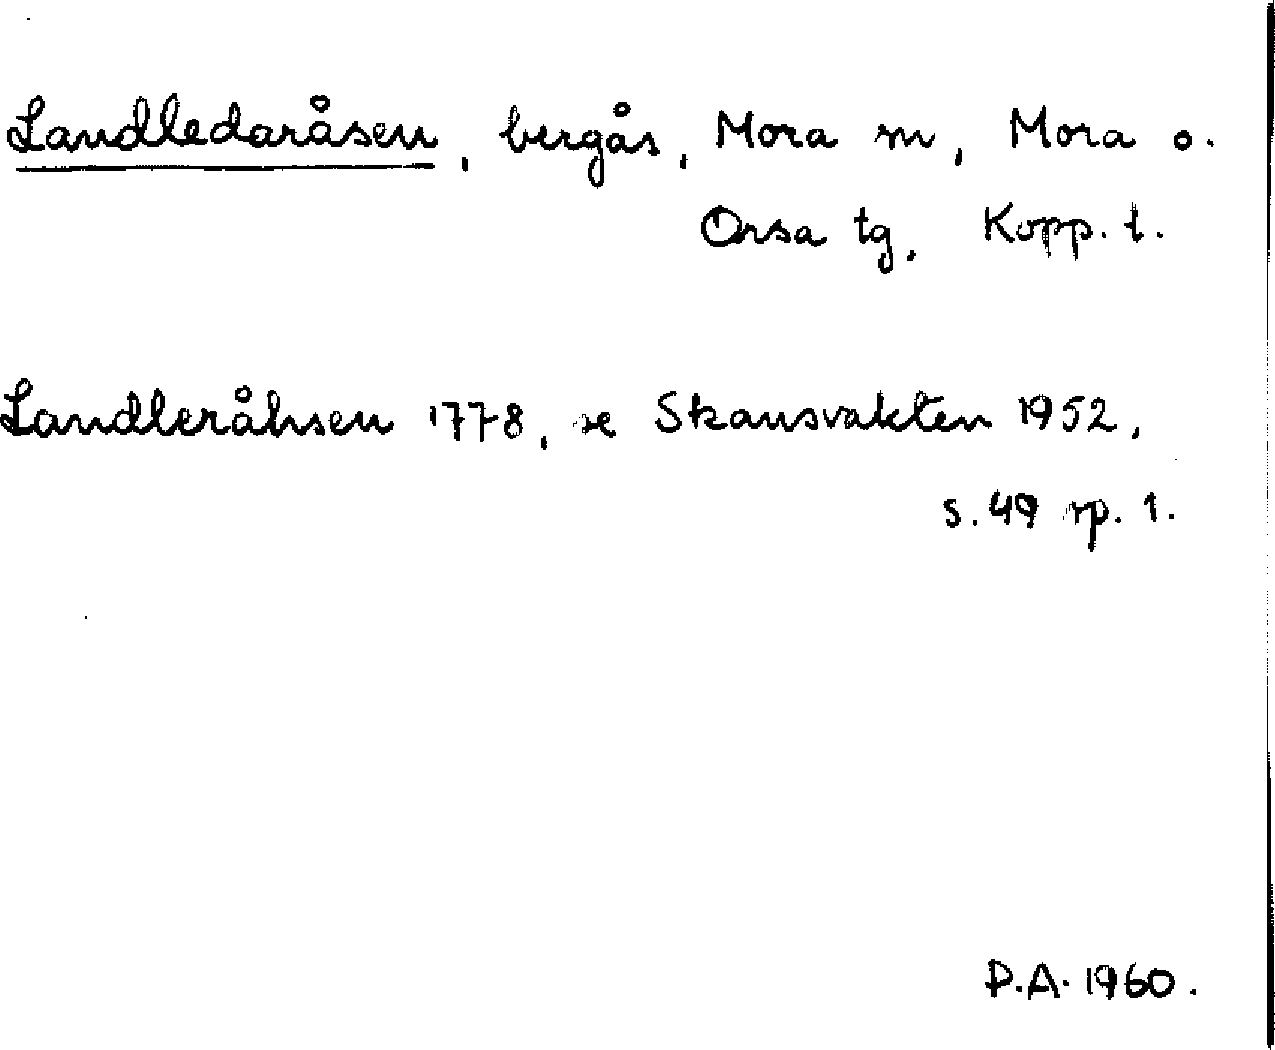 Landledaråsen, bergås, Mora sn, Mora o.
Orsa tg, Kopp. l.
Landleråhsen 1778, se Skansvakten 1952,
s. 49 sp. 1.
P.A. 1960.